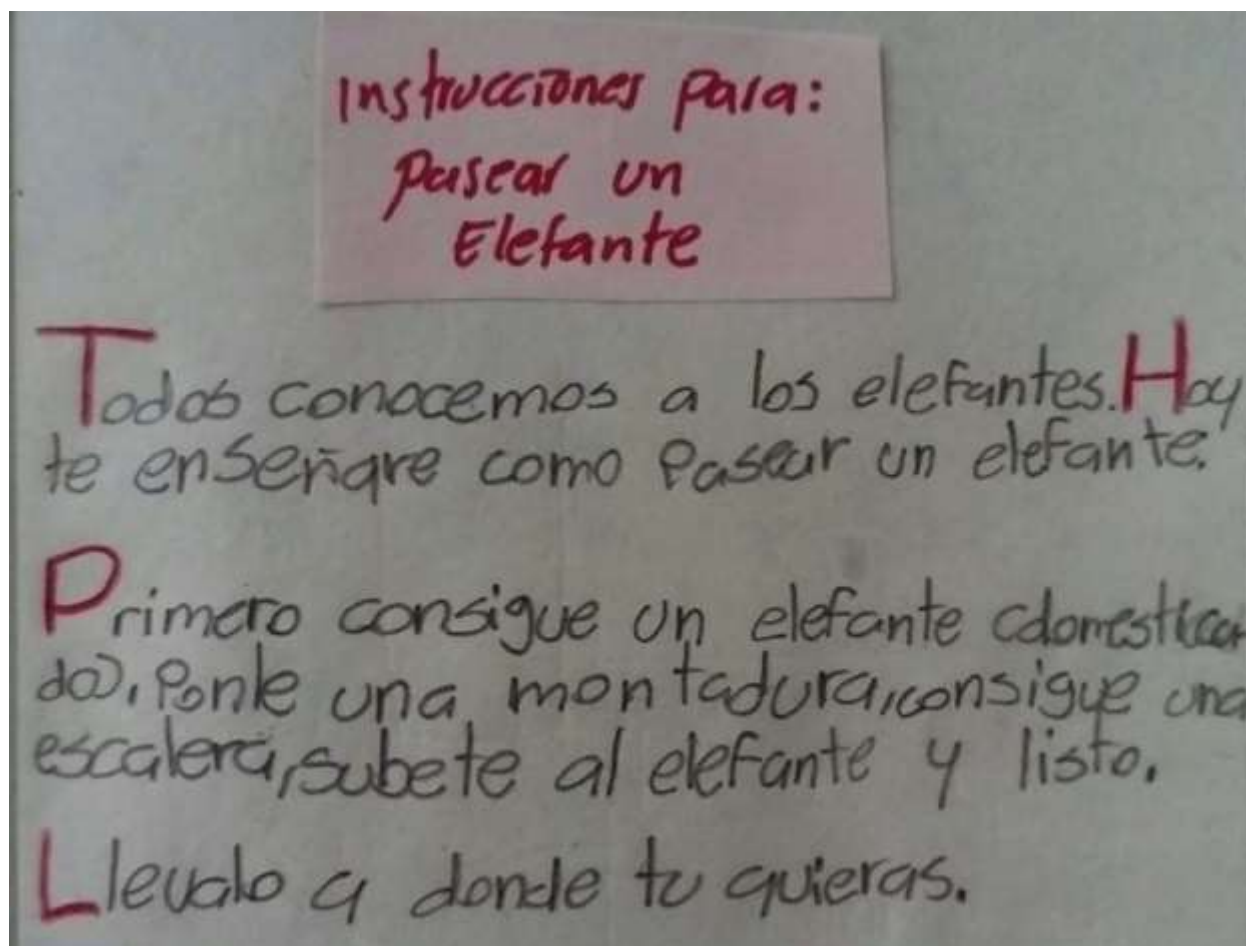 Instrucciones para:
Pasear un
Elefante
Todos conocemos a los elefantes. Hoy
te enseñare como Pasear un elefante.
Primero consigue un elefante (domestica
do), Ponle una montadura, consigue una
escalera, subete al elefante y listo.
Llevalo a donde tu quieras.